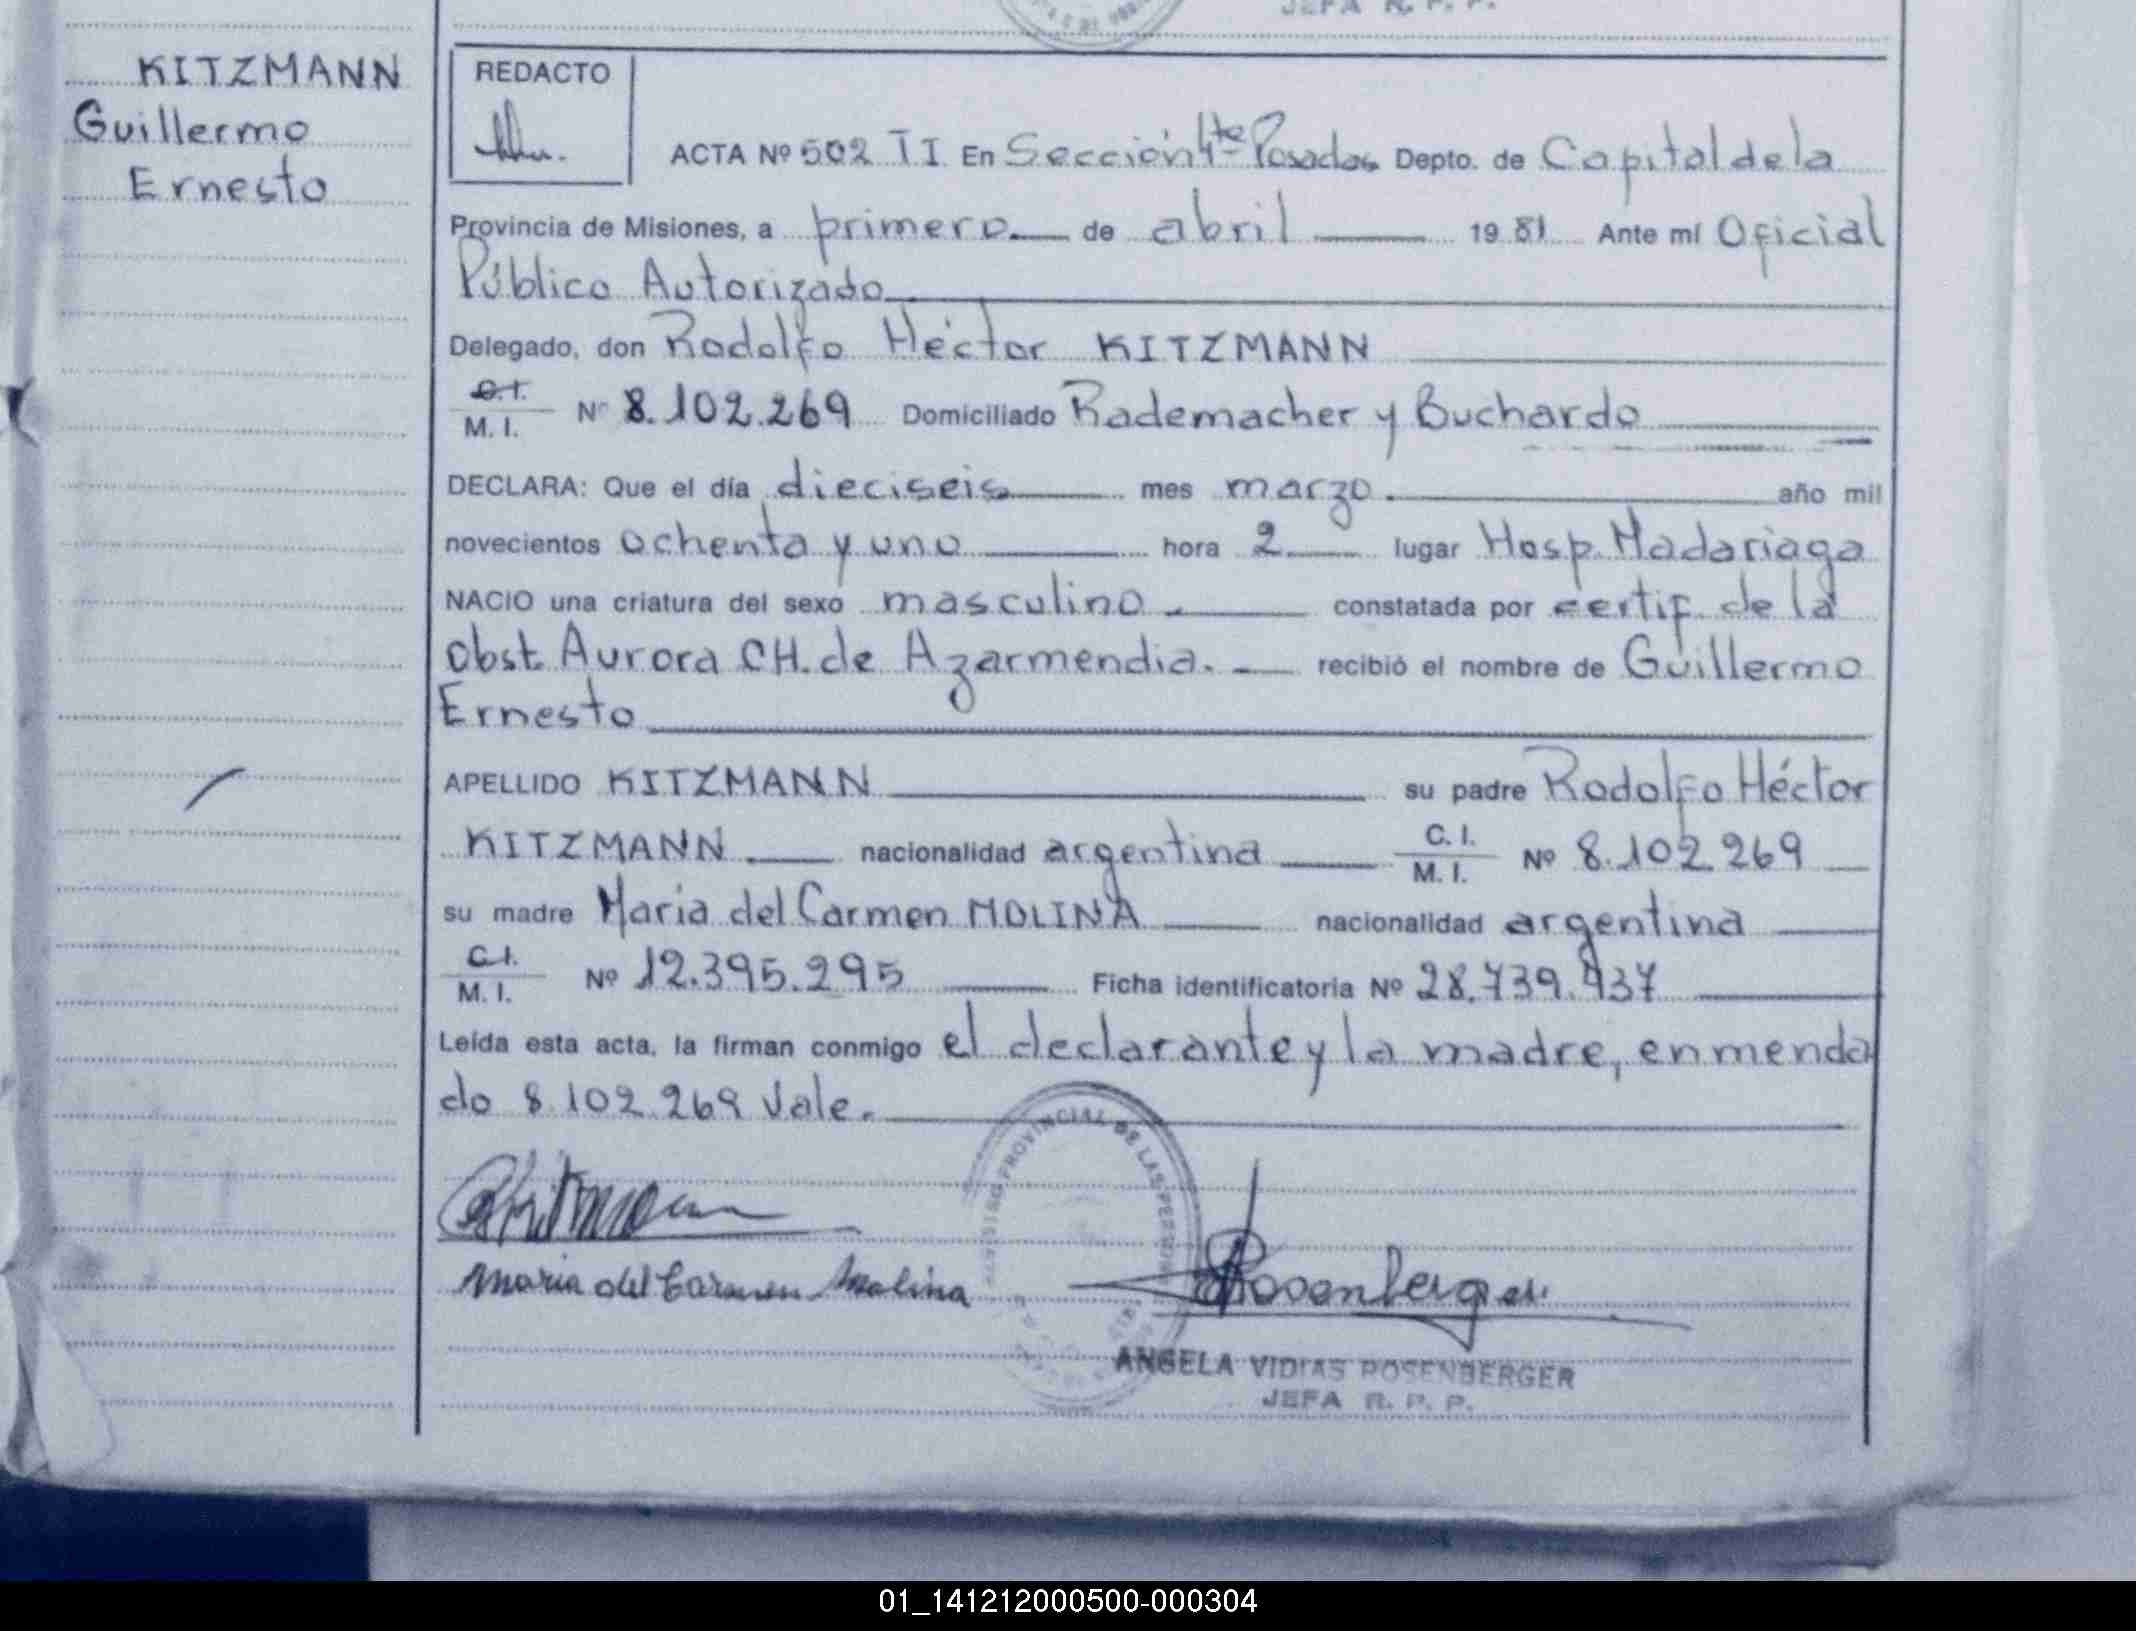 JEFA R. P. P.
KITZMANN
Guillermo
Ernesto
REDACTO
ACTA Nº 502 TI En Sección 4ta Posadas Depto. de Capital de la
Provincia de Misiones, a primero de abril 1981 Ante mí Oficial
Público Autorizado
Delegado, don Rodolfo Héctor KITZMANN
C.I.
M. I. Nº 8.102.269 Domiciliado Rademacher y Buchardo
DECLARA: Que el día dieciseis mes marzo. año mil
novecientos ochenta y uno hora 2 lugar Hosp. Madariaga
NACIO una criatura del sexo masculino. constatada por certif. de la
obst. Aurora CH. de Azarmendia. recibió el nombre de Guillermo
Ernesto
APELLIDO KITZMANN su padre Rodolfo Héctor
KITZMANN nacionalidad argentina C. I.
M. I. Nº 8.102.269
su madre Maria del Carmen MOLINA nacionalidad argentina
C.I.
M. I. Nº 12.395.295 Ficha identificatoria Nº 28.739.937
Leída esta acta, la firman conmigo el declarante y la madre, enmenda
do 8.102.269 Vale.
REGISTRO PROVINCIAL DE LAS PERSONAS
Maria del Carmen Molina
Rosenberger
ANGELA VIDIAS ROSENBERGER
JEFA R. P. P.
01_141212000500-000304